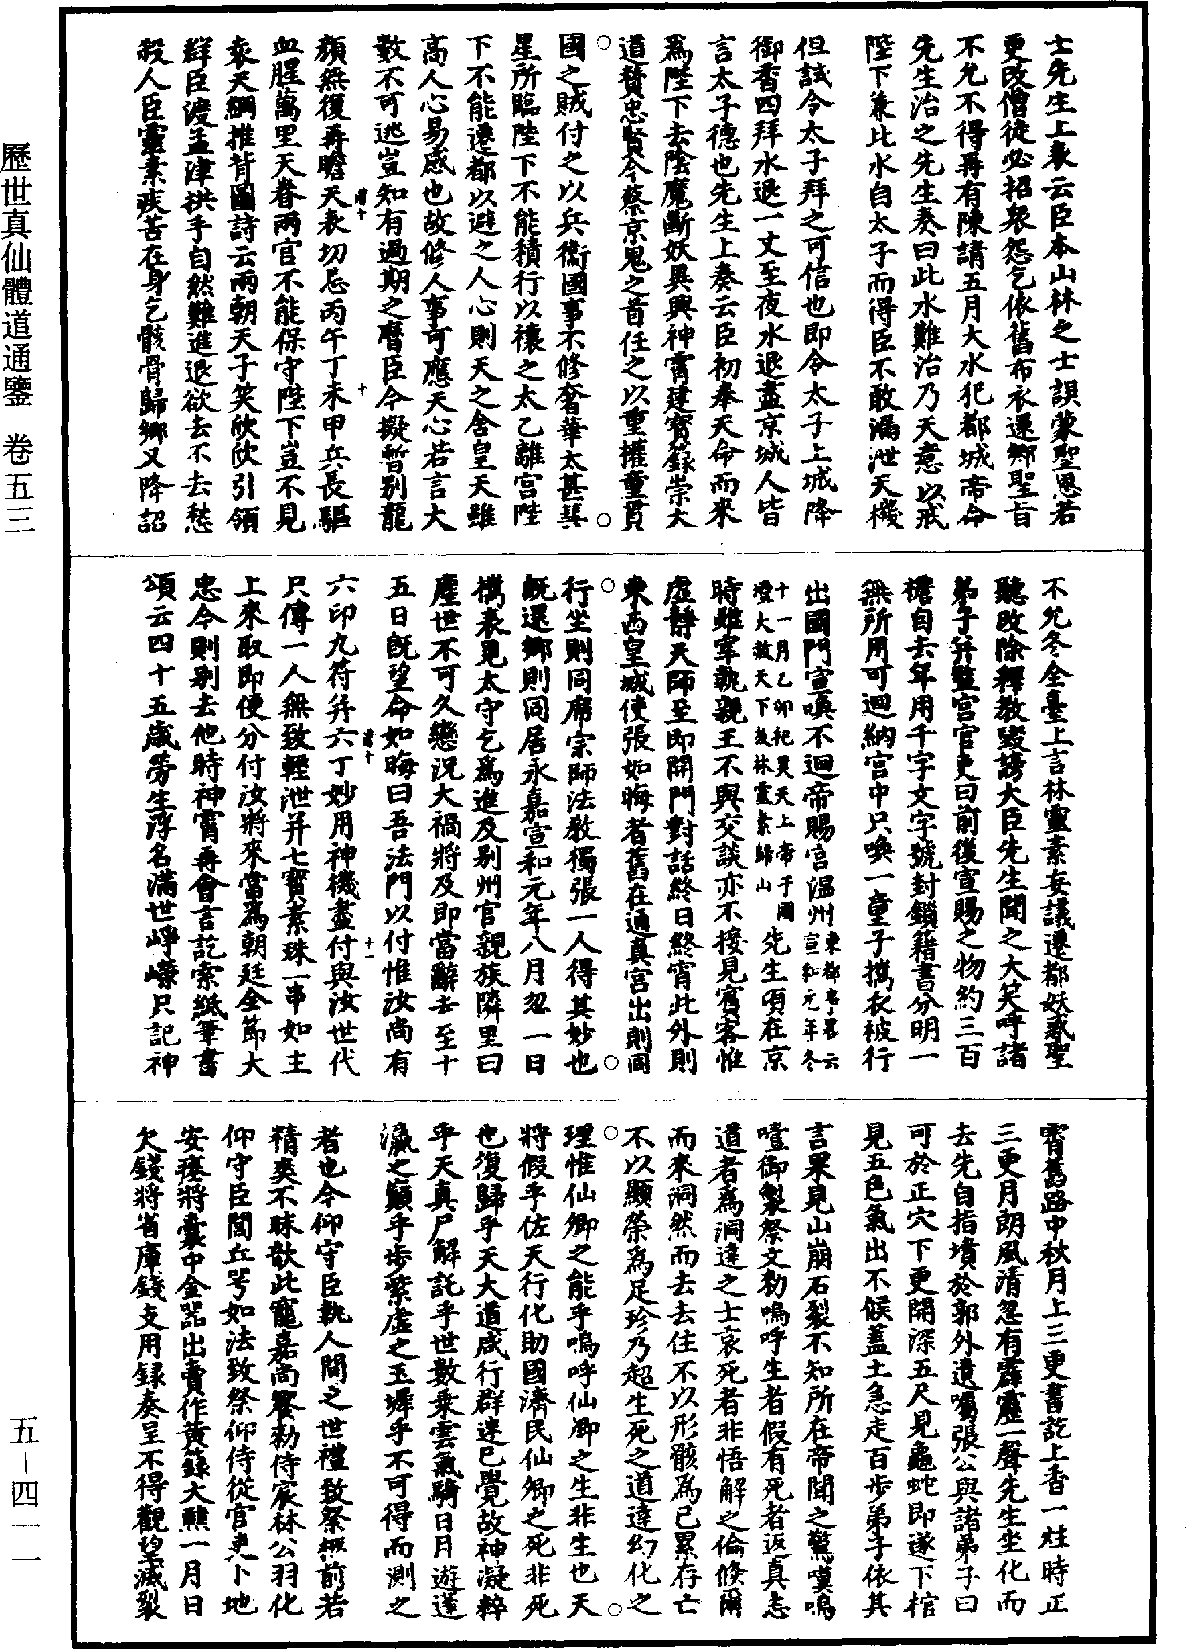 士先生上表云臣本山林之士誤蒙聖恩若
更改僧徒必招衆怨乞依舊布衣還鄉聖旨
不允不得再有陳請五月大水犯都城帝命
先生治之先生奏曰此水難治乃天意以戒
陛下兼比水自太子而得臣不敢漏泄天機
但試令太子拜之可信也即令太子上城降
御香四拜水退一丈至夜水退盡京城人皆
言太子德也先生上奏云臣初奉天命而來
為陛下去陰魔斷妖異興神霄建寶籙崇大
道贊忠賢今蔡京鬼之首任之以重權童貫
國之賊付之以兵衛國事不修奢華太甚彗
星所臨陛下不能積行以禳之太乙離宮陛
下不能遷都以避之人心則天之舍皇天雖
高人心易感也故修人事可應天心若言大
數不可逃豈知有過期之曆臣今擬暫別龍
顏無復再瞻天表切忌丙午丁未甲兵長驅
血腥萬里天眷兩宮不能保守陛下豈不見
袁天綱推背圖詩云兩朝天子笑欣欣引領
群臣渡孟津拱手自然難進退欲去不去愁
殺人臣靈素疾苦在身乞骸骨歸鄉又降詔
不允冬全臺上言林靈素妄議遷都妖惑聖
聽改除釋教毀謗大臣先生聞之大笑呼諸
弟子并監宮官吏曰前後宣賜之物約三百
檐自去年用千字文字號封鎖籍書分明一
無所用可迴納宮中只喚一童子攜衣被行
出國門宣喚不迴帝賜宮溫州東都事畧云宣和元年冬
十一月乙卯祀昊天上帝于圜
壇大赦天下放林靈素歸山先生頃在京
時雖宰執親王不與交談亦不接見賓客惟
虛靜天師至即開門對話終日終宵此外則
東西皇城使張如晦者舊在通真宮出則同
行坐則同席宗師法教獨張一人得其妙也
既還鄉則同居永嘉宣和元年八月忽一日
攜表見太守乞為進及別州官親族隣里曰
塵世不可久戀況大禍將及即當辭去至十
五日既望命如晦曰吾法門以付惟汝尚有
六印九符并六丁妙用神機盡付與汝世代
只傳一人無致輕泄并七寶素珠一串如主
上來取即便分付汝將來當為朝廷全節大
忠今則別去他時神霄再會言訖索紙筆書
頌云四十五歲勞生浮名滿世崢嶸只記神
霄舊路中秋月上三更書訖上香一炷時正
三更月朗風清忽有霹靂一聲先生坐化而
去先自指墳於郭外遺囑張公與諸弟子曰
可於正穴下更開深五尺見龜蛇即遂下棺
見五色氣出不候蓋土急走百步弟子依其
言果見山崩石裂不知所在帝聞之驚嘆嗚
噎御製祭文勑嗚呼生者假有死者返真志
道者為洞達之士哀死者非悟解之倫倏爾
而來洞然而去去住不以形骸為己累存亡
不以顯榮為足珍乃超生死之道達幻化之
理惟仙卿之能乎嗚呼仙卿之生非生也天
將假乎佐天行化助國濟民仙卿之死非死
也復歸乎天大道成行群迷已覺故神凝粹
乎天真尸解託乎世數乘雲氣騎日月遊蓬
瀛之巔乎步紫虛之玉墀乎不可得而測之
者也今仰守臣執人間之世禮致祭柩前若
精爽不昧歆此寵嘉尚饗勑侍宸林公羽化
仰守臣閭丘咢如法致祭仰侍從官吏卜地
安瘞將囊中金器出賣作黃籙大醮一月日
欠錢將省庫錢支用録奏呈不得觀望滅裂
歷世真仙體道通鑒 卷五三
五－四一一